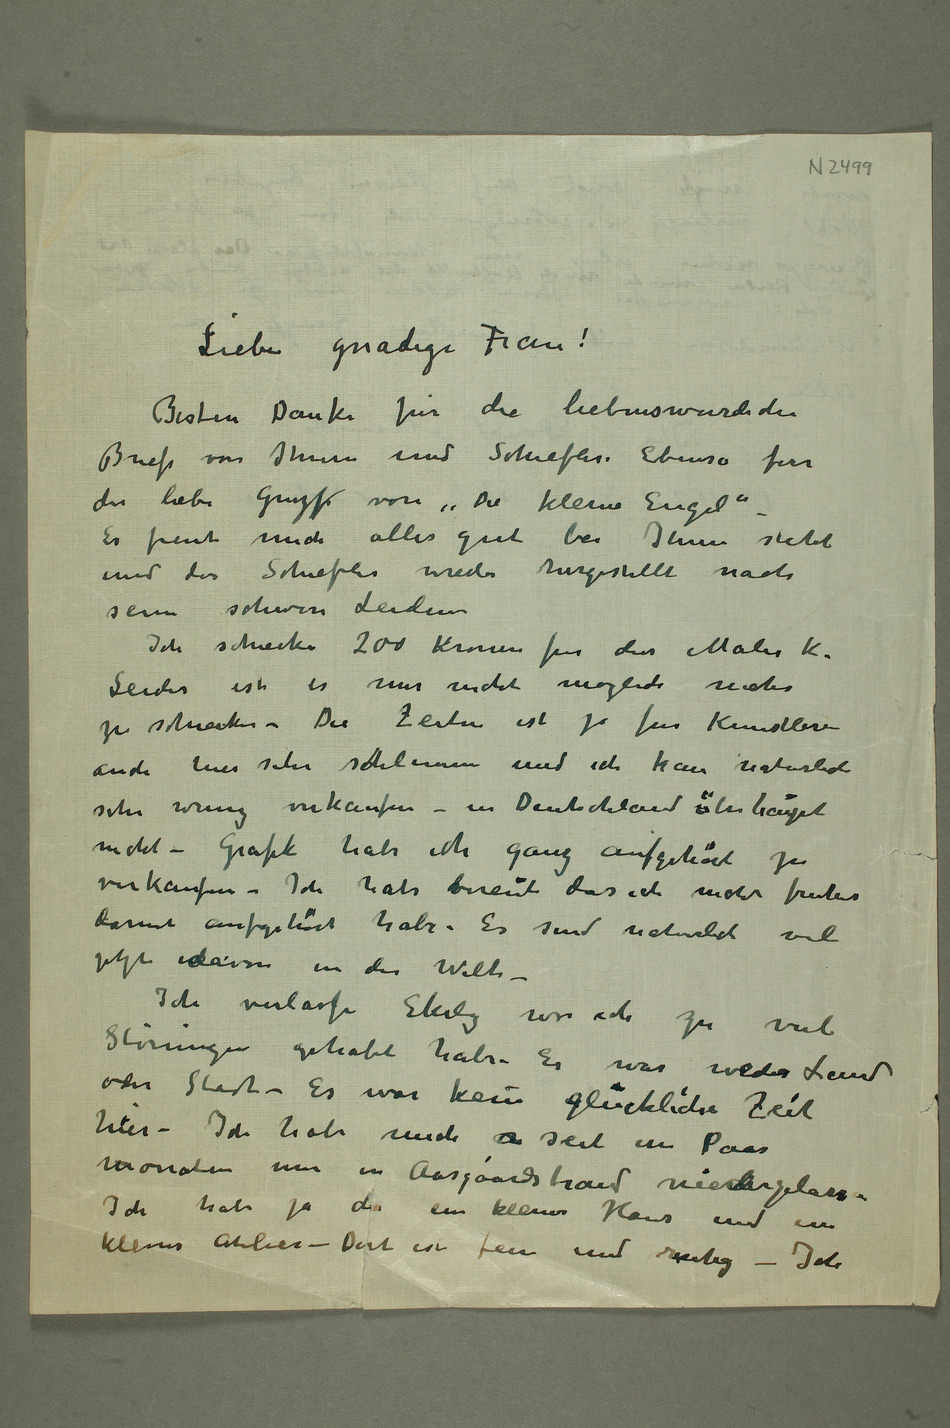 N 2499
Liebe gnädige Frau!
Besten Danke für die liebenswurdiche
Briefe von Ihnen und Schiefler. Ebenso fur
die liebe Gruze von „Die kleine Engel“ –
Es freut mich alles gut bei Ihnen stehet
und das Schiefler wieder hergestellt nach
seine schwere Leiden
Ich schicke 200 Kronen fur der Maler K.
Leider ist es mir nicht moglich mehr
zu schicken – Die Zeiten ist ja fur Kunstlere
auch hier sehr schlimm und ich kan naturlich
sehr wenig verkaufen – in Deutschland überhaupt
nicht – Grafik habe ich ganz aufgehört zu
verkaufen – Ich habe bereut das ich nicht fruher
damit aufgehört habe. Es sind naturlich viel
jetzt davon in der Welt –
Ich verlasse Ekely wo ich zu viel
Störungen gehabt habe – Es war weder Land
oder Stadt – Es war kein glückliche Zeit
hier – Ich habe mich seit ein Paar
monaten nun in Aasgaardstrand niedergelass.
Ich habe ja da ein kleines Haus und ein
kleines Atelier – Dort ist fein und ruhig – Ich